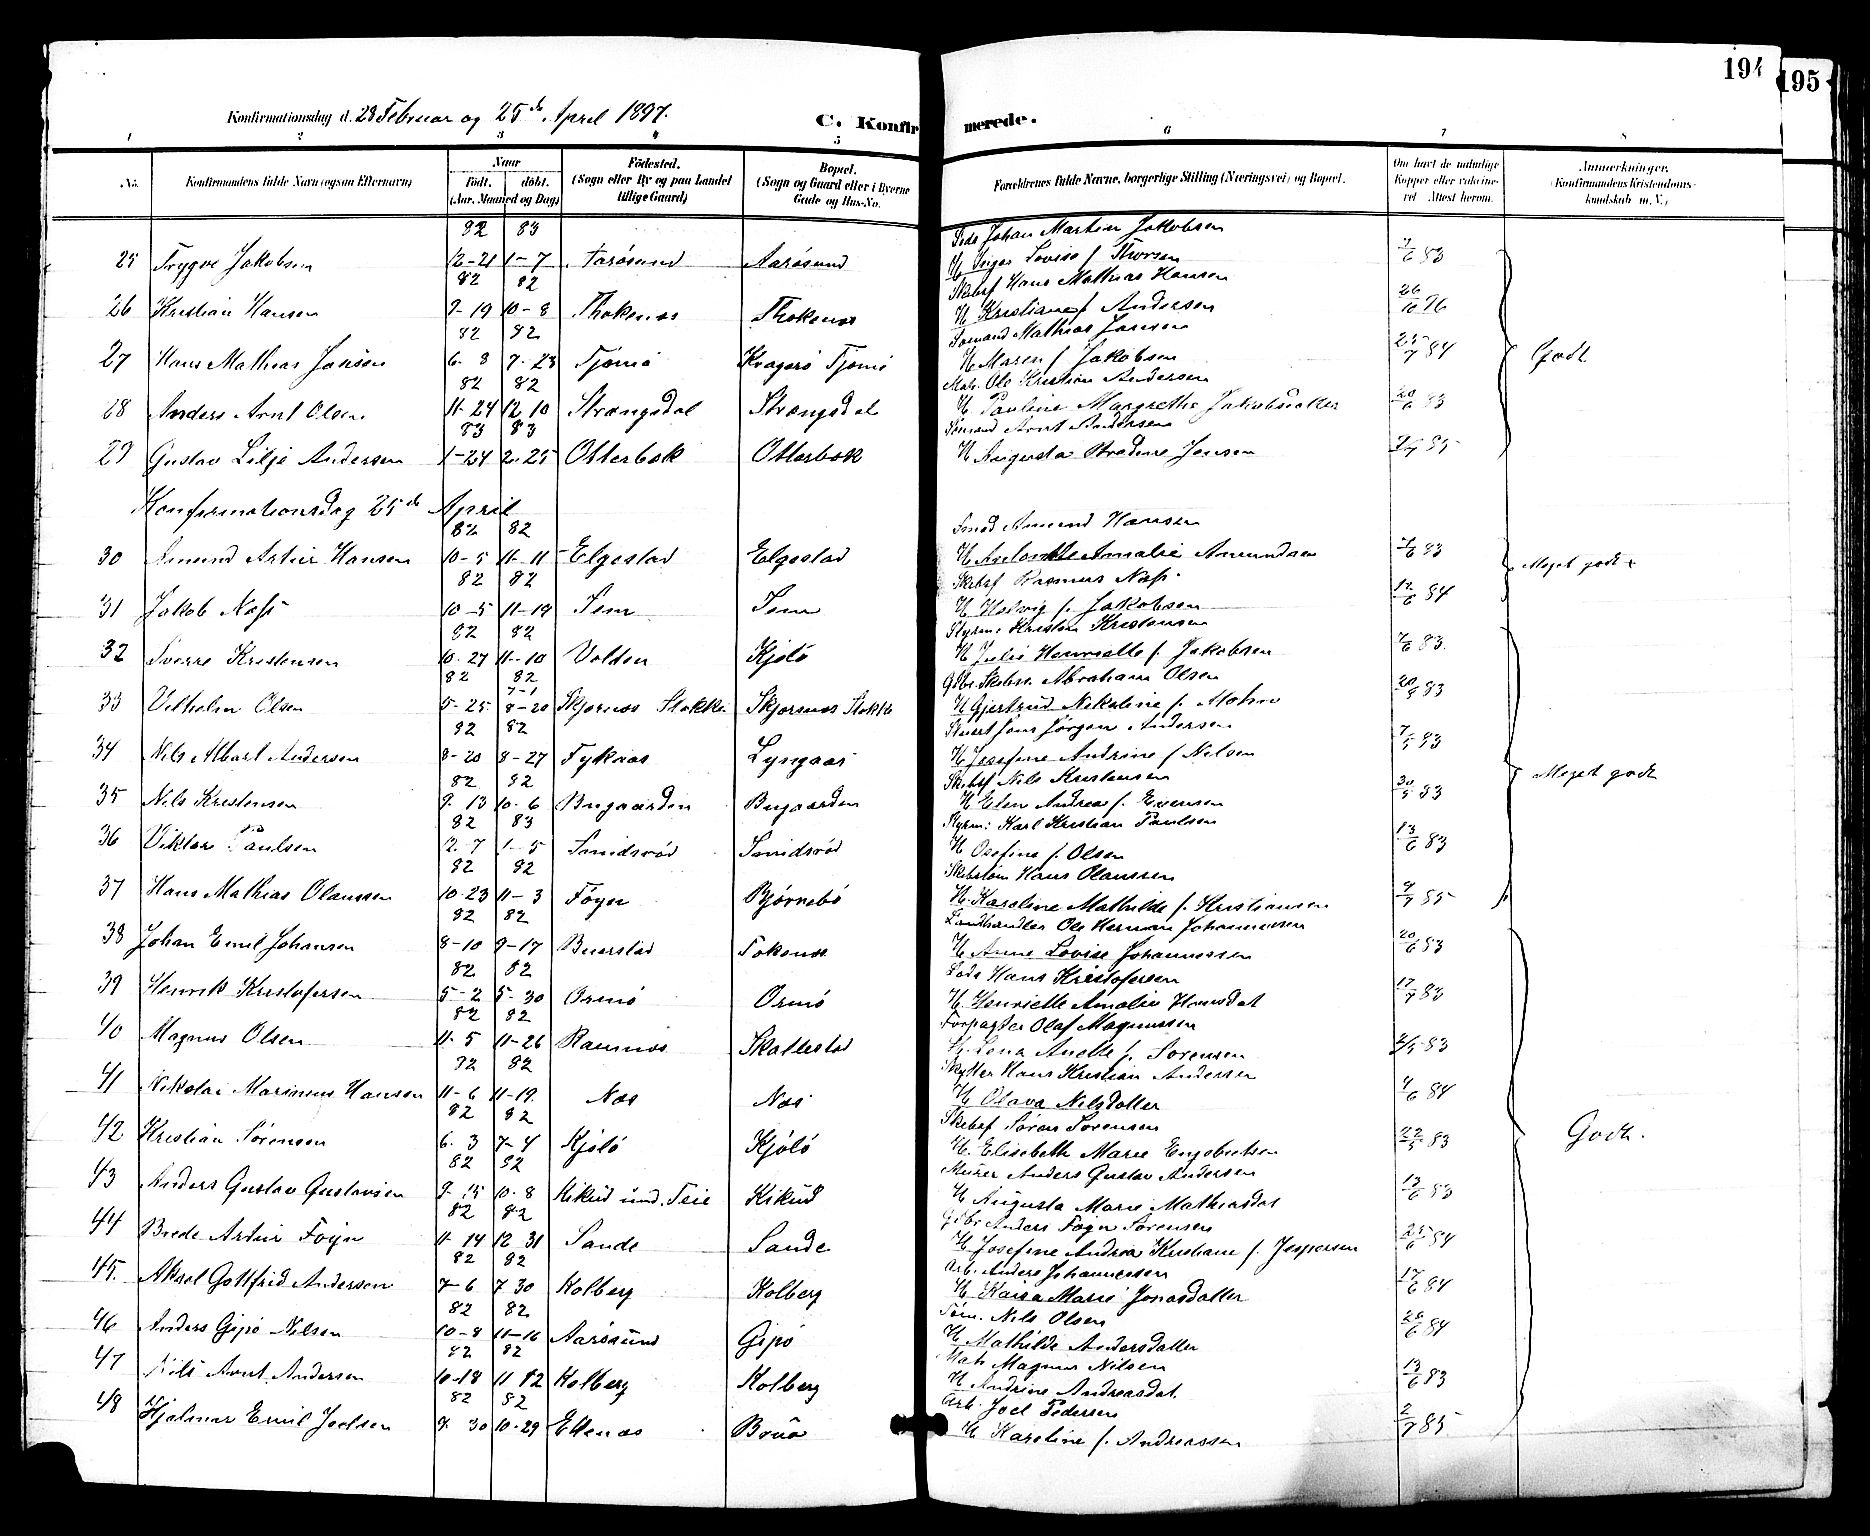 194
195
Konfirmationsdag d. 28 Februar og 25de April 1897.
C. Konfirmerede.
1 2 3 4 5 6 7 8
No. Konfirmandens fulde Navn (ogsaa Efternavn) Naar Födt. döbt. (Aar, Maaned og Dag) Födested. (Sogn eller By og paa Landet tillige Gaard) Bopæl. (Sogn og Gaard eller i Byerne Gade og Hus-No. Forældrenes fulde Navne, borgerlige Stilling (Næringsvei) og Bopæl. Om havt de naturlige Kopper eller vaccineret Attest herom. Anmærkninger. (Konfirmandens Kristendomskundskab m. V.)
82 83 Johan Martin Jakobsen
25 Trygve Jakobsen 12-21 1-7 Aarøsund Aarøsund H Lovise f. Thorsen 7/6 83
82 82 Skibsf Hans Mathias Hansen
26 Kristian Hansen 9-19 10-8 Thokenæs Thokenæs H Kristiane f Andersen 26/10 96
82 82 Sømand Mathias Jansen
27 Hans Mathias Jansen 6-8 7-23 Tjømø Kragerø Tjømø H Maren f Jakobsen 25/7 84 Godt
82 82 Matr. Ole Kristian Andersen
28 Anders Arnt Olsen 11-24 12-10 Strængsdal Strængsdal H Pauline Margrethe Jakobsdatter 20/6 83
83 83 Sømand Arnt Andersen
29 Gustav Lilje Andersen 1-24 2-25 Otterbæk Otterbæk H Augusta Bredine Jensen
Konfirmationsdag 25de April
82 82 Smed Amund Hansen
30 Amund Artur Hansen 10-5 11-11 Elgestad Elgestad H Antonette Amalie Amundsen 7/6 83 Meget godt +
82 82 Skibsf Rasmus Næss
31 Jakob Næss 10-5 11-19 Sem Sem H Hedvig f. Jakobsen 12/6 84
82 82 Styrm: Kristen Kristensen
32 Sverre Kristensen 10-27 11-10 Volden Kjølø H Julie Henriette f. Jakobsen 7/6 83.
82 82 Gdbr. Skibsr. Abraham Olsen
7-1
33 Vilhelm Olsen 5-25 8-20 Skjærnæs Stokke Skjærsnæs Stokke H Gjertrud Nikoline f. Mohn 20/8 83
82 82 Jons Jørgen Andersen
34 Nils Albart Andersen 8-20 8-27 Fyknæs Lyngaas H Josefine Andrine f Nilsen 7/5 83
82 82 Skibsf Nils Kristensen Meget godt
35 Nils Kristensen 9-13 10-6 Bugaarden Bugaarden H Elen Andrea f. Evensen 30/5 83
82 83 Styrm: Karl Kristian Paulsen
36 Viktor Paulsen 12-7 1-5 Smidsrød Smidsrød H Osefine f. Olsen 13/6 83
82 82 Skibstøm Hans Olaussen
37 Hans Mathias Olaussen 10-23 11-3 Føyn Bjørnebø H. Karoline Mathilde f. Kristiansen 9/7 85
82 82 Landhandler Ole Herman Johannessen
38 Johan Emil Johansen 8-10 9-17 Buerstad Tokenæs H Anne Lovise Johannessen 20/6 83
82 82 Lods Hans Kristofersen
39 Henrik Kristofersen 5-2 5-30 Ormø Ormø H. Henriette Amalie Hansdat 17/7 83
82 82 Forpagter Olaf Magnussen
40 Magnus Olsen 11-5 11-26 Ramnæs Skallestad H. Lena Anette f. Sørensen 2/5 83
82 82 Skytter Hans Kristian Andersen
41 Nikolai Marinius Hansen 11-6 11-19. Næs Næs H Olava Nilsdatter 4/6 84
82 82 Skibsf Søren Sørensen
42 Kristian Sørensen 6-3 7-4 Kjølø Kjølø H. Elisabeth Marie Engebretsen 22/5 83 Godt.
82 82 Murer Anders Gustav Andersen
43 Anders Gustav Gustavsen 9-15 10-8 Kikud und. Teie Kikud H Augusta Marie Mathiasdat 13/6 83
82 82 Gdbr Anders Føyn Sørensen
44 Brede Artur Føyn 11-14 12-31 Sande Sande H. Josefine Andrea Kristiane f. Jespersen 25/6 84
82 82 Arb. Anders Johannesen
45. Aksel Gottfrid Andersen 7-6 7 30 Kolberg Kolberg H Kaisa Marie Jonasdatter 17/6 84
82 82 Tøm. Nils Olsen
46 Anders Gipø Nilsen 10-8 11-16 Aarøsund Gipø H Mathilde Andersdatter 26/6 84
82 82 Matr Magnus Nilsen
47 Nils Arnt Andersen 10-18 11 12 Kolberg Kolberg H Andrine Andreasdat. 13/6 83
82 82 Arb. Joel Pedersen
48 Hjalmar Emil Joelsen 9-30 10-29 Ellenæs Bruø H Karoline f. Andreassen 2/7 85